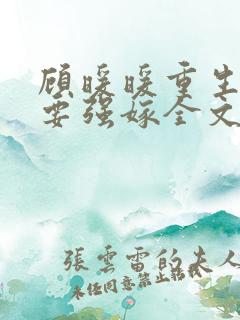 顾暖暖重生
要强嫁全文
張雲雷的夫人
未经同意禁止转载